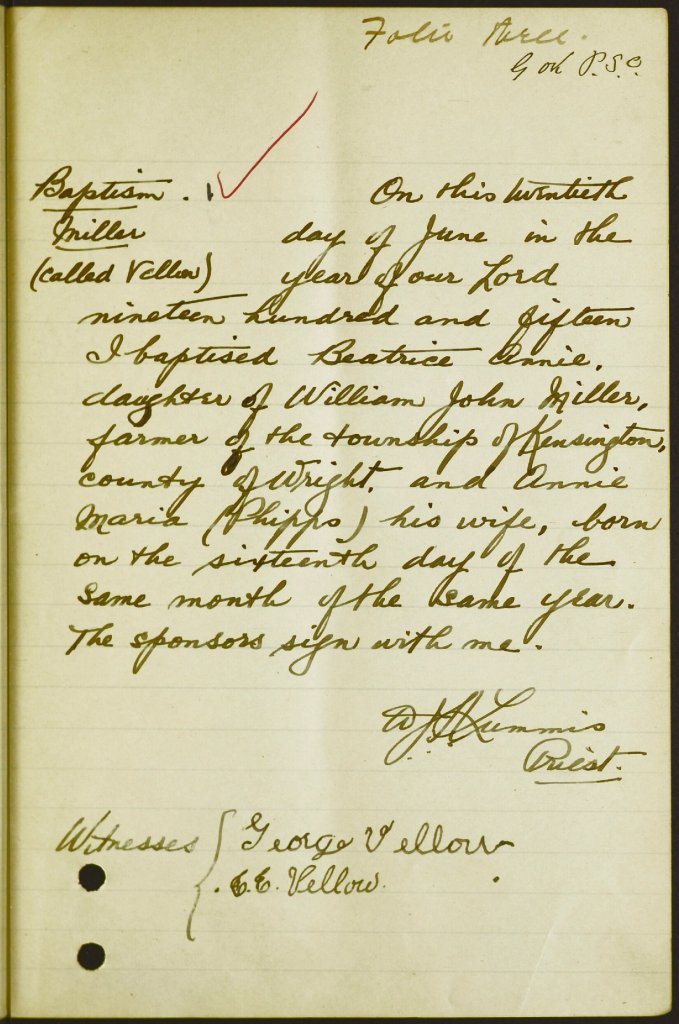 Folio three.
G or P.S.C.
Baptism. On this twentieth
Miller day of June in the
(called Vellow) year of our Lord
nineteen hundred and fifteen
I baptised Beatrice Annie,
daughter of William John Miller,
farmer of the township of Kensington,
county of Wright, and Annie
Maria (Phipps) his wife, born
on the sixteenth day of the
same month of the same year.
The sponsors sign with me.
Lummis
Priest.
Witnesses { George Vellow
E. Vellow.